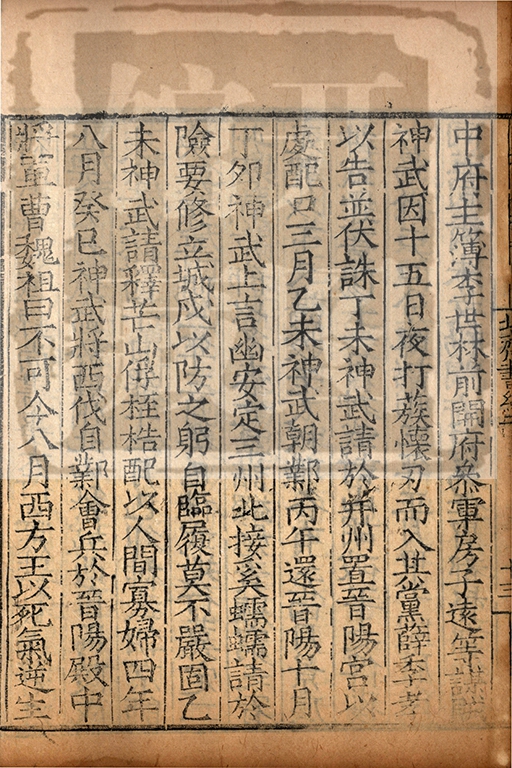 中府主簿李世林前開府叅軍房子遠等謀賊
神武因十五日夜打蔟懷刃而入其黨薛季孝
以告並伏誅丁未神武請於并州置晉陽宮以
處配口三月乙未神武朝鄴丙午還晉陽十月
丁卯神武上言幽安定三州北接奚蠕蠕請於
險要修立城戍以防之躬自臨履莫不嚴固乙
未神武請釋芒山俘桎梏配以人間寡婦四年
八月癸巳神武將西伐自鄴會兵於晉陽殿中
將軍曹魏祖曰不可今八月西方王以死氣逆生
北齊書紀二
十三